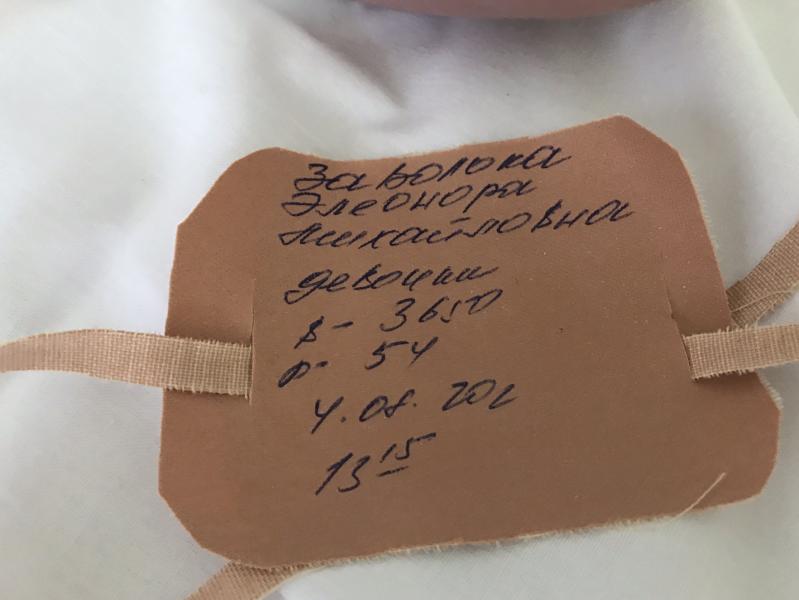 Заволока
Элеонора
Михайловна
девочка
в- 3650
р- 54
4.08.20г
13 15